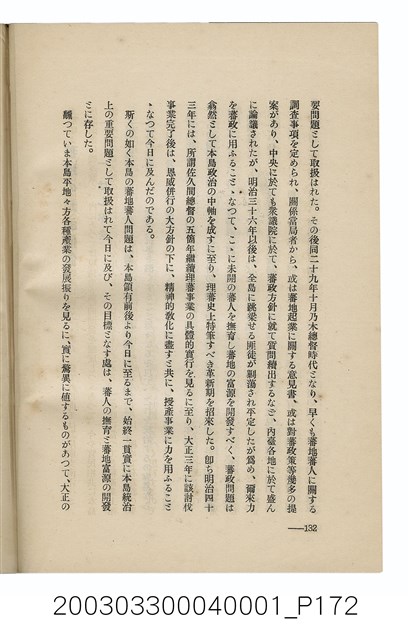 要問題として取扱はれた。その後同二十九年十月乃木總督時代となり、早くも蕃地蕃人に關する
調査事項を定められ、關係當局者から、或は蕃地起業に關する意見書、或は對蕃政策等幾多の提
案があり、中央に於ても衆議院に於て、蕃政方針に就て質問續出するなど、內臺各地に於て盛ん
に論議されたが、明治三十六年以後は、全島に跳梁せる匪徒が剿蕩され平定したが爲め、爾來力
を蕃政に用ふることゝなつて、こゝに未開の蕃人を撫育し蕃地の富源を開發すべく、蕃政問題は
翕然として本島政治の中軸を成すに至り、理蕃史上特筆すべき革新期を招來した。卽ち明治四十
三年には、所謂佐久間總督の五箇年繼續理蕃事業の具體的實行を見るに至り、大正三年に該討伐
事業完了後は、恩威併行の大方針の下に、精神的敎化に盡すと共に、授產事業に力を用ふること
ゝなつて今日に及んだのである。
斯くの如く本島の蕃地蕃人問題は、本島領有前後より今日に至るまで、始終一貫實に本島統治
上の重要問題として取扱はれて今日に及び、その目標となす處は、蕃人の撫育と蕃地富源の開發
とに存した。
飜つていま本島平地々方各種產業の發展振りを見るに、實に驚異に値するものがあつて、大正の
——132
200303300040001_P172